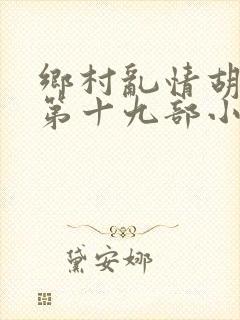 鄉村亂情胡
第十九部小
黛安娜